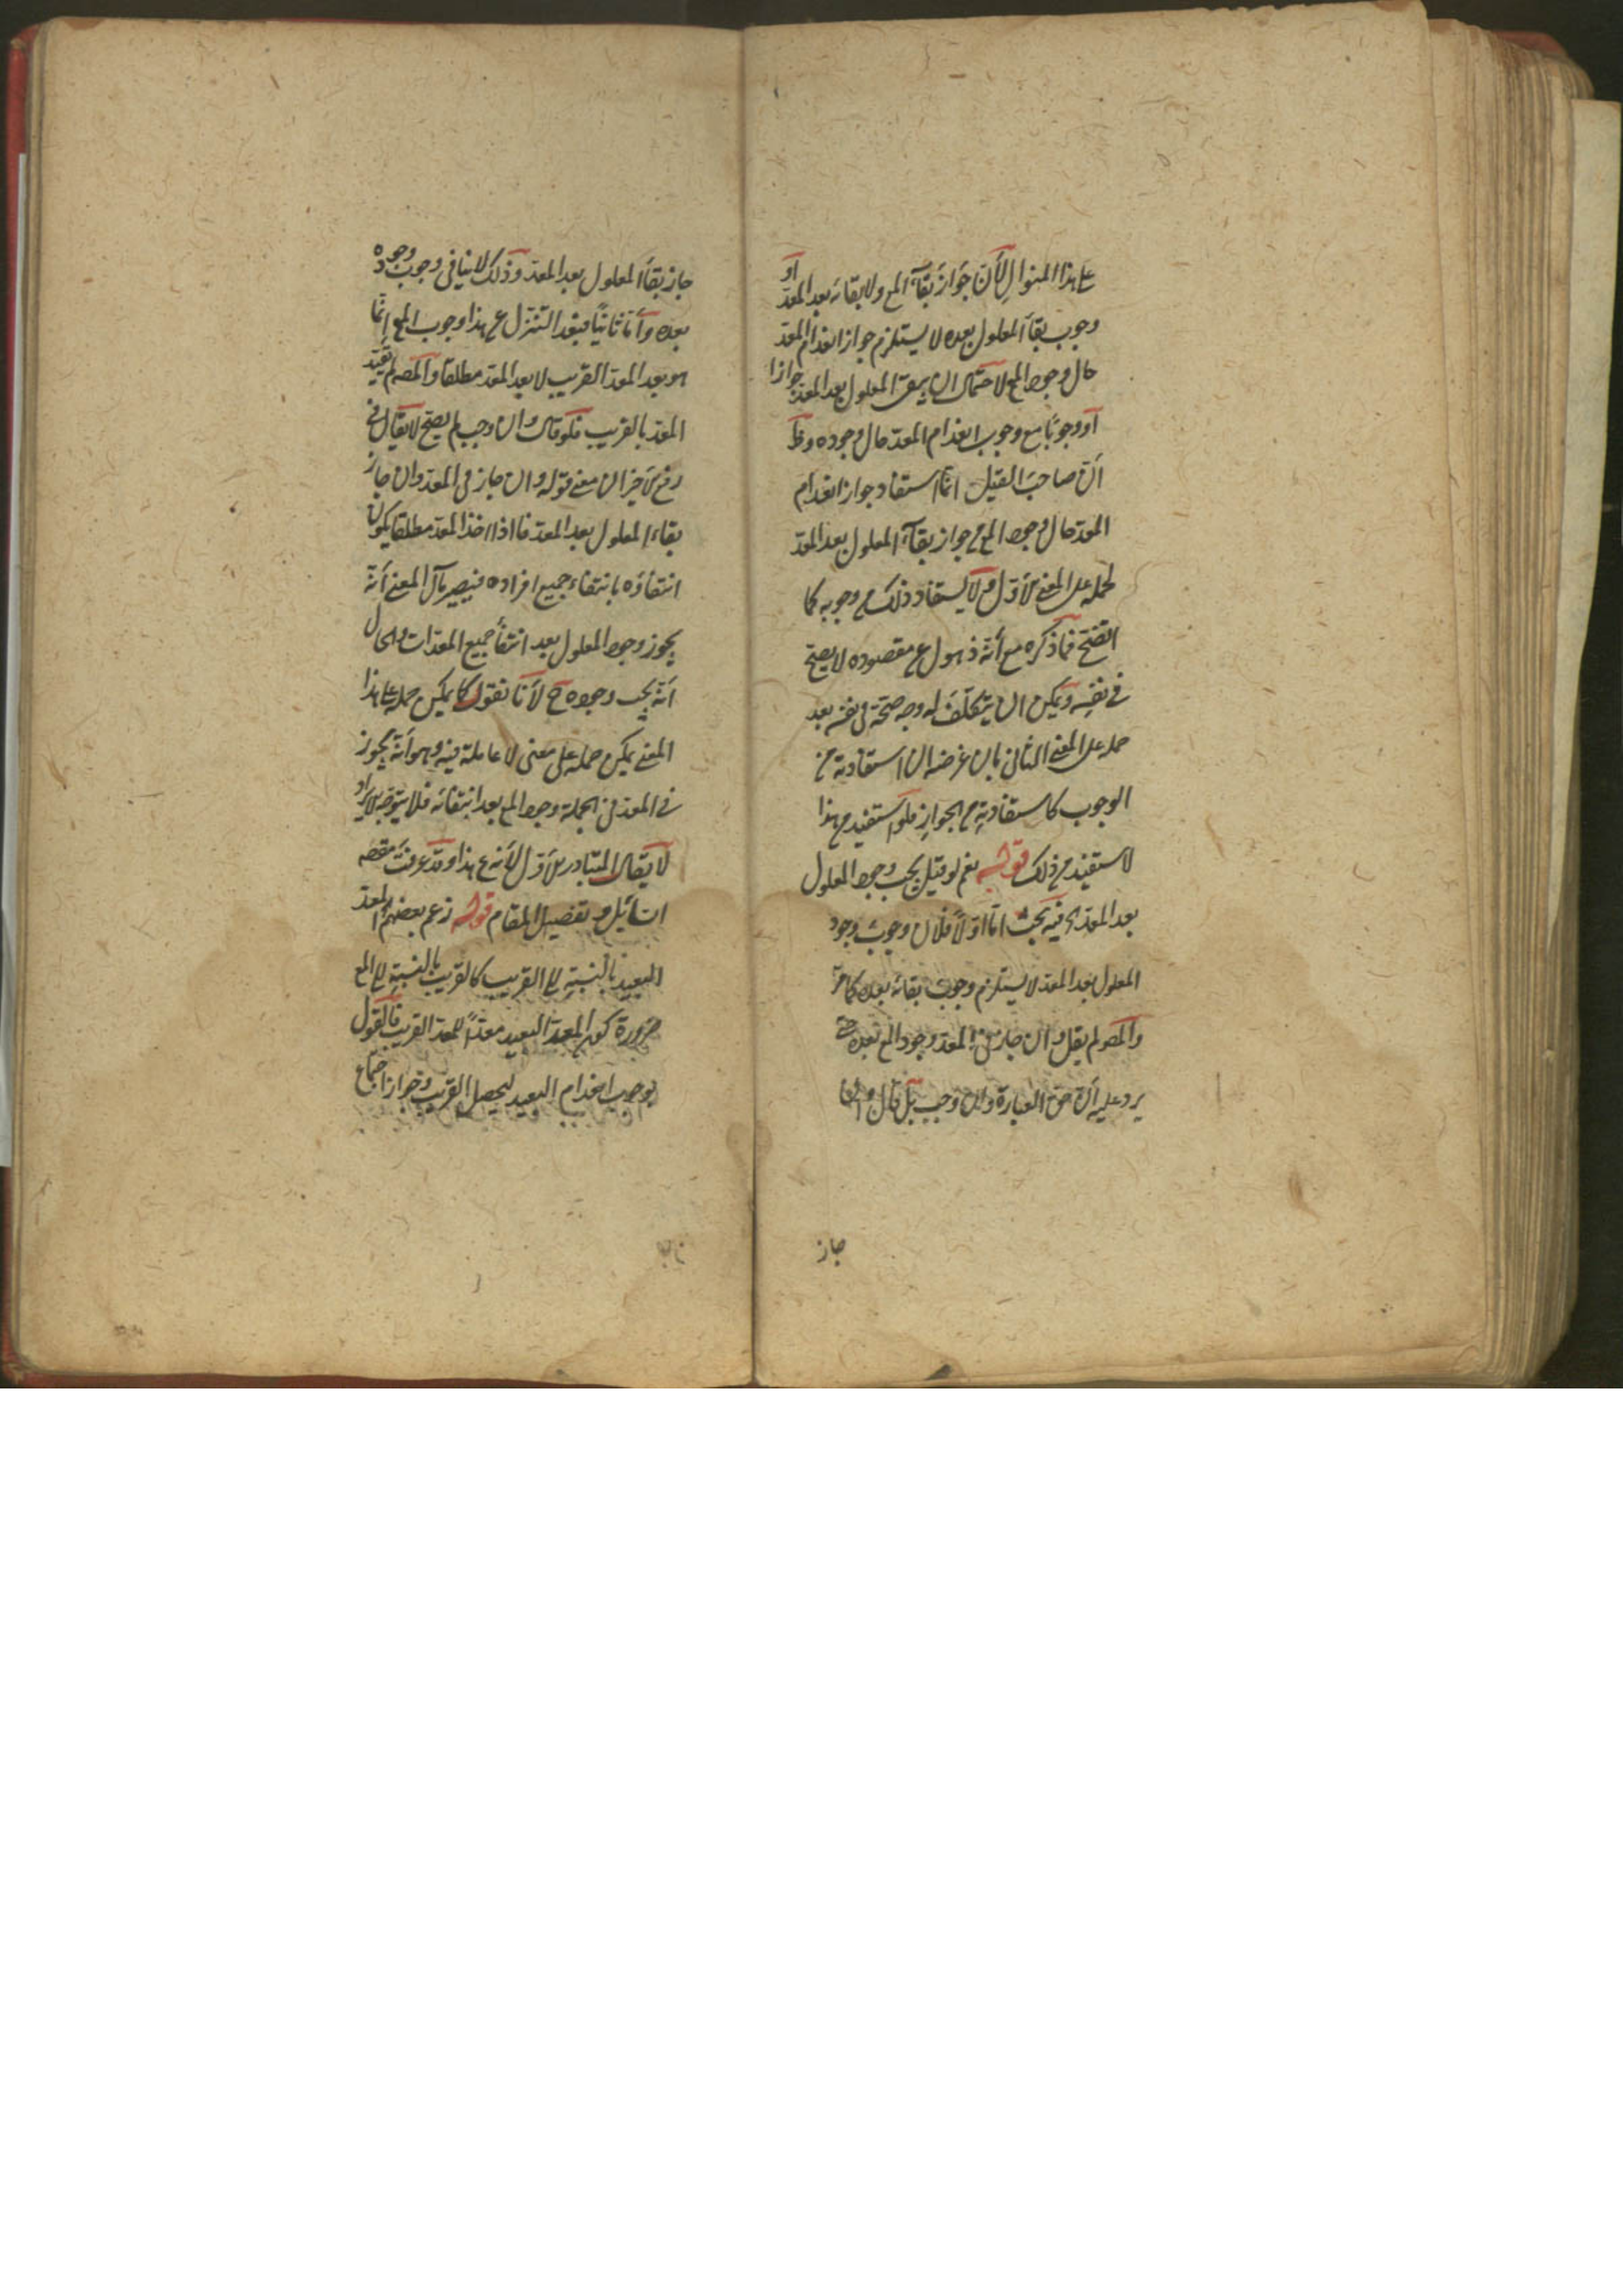 على هذا المنوال لأن جواز بقاء المع ولا بقائه بعد المعد أو
وجوب بقاء المعلول بعده لا يستلزم جواز انعدام المعد
حال وجود المع لاحتمال ان يبقى المعلول بعد المعد جوازا
أو وجوبا مع وجوب انعدام المعد حال وجوده وظ
أن صاحب القيل انما استفاد جواز انعدام
المعد حال وجود المع من جواز بقاء المعلول بعد المعد
لحمله على المعنى الأول ولا يستفاد ذلك من وجوبه كما
اتضح فما ذكره مع أنه ذهول عن مقصوده لا يصح
في نفسه ويمكن ان يتكلف له وجه صحة في نفسه بعد
حمله على المعنى الثاني بان غرضه ان استفادته من
الوجوب كاستفادته من الجواز فلو استفيد من هذا
لاستفيد من ذلك قوله نعم لو قيل يجب وجود المعلول
بعد المعد الخ فيه بحث اما اولا فلان وجوب وجود
المعلول بعد المعد لا يستلزم وجوب بقائه بعده كما مر
والمصه لم يقل وان جاز في المعد وجود المع بعده حتى
يرد عليه أن حق العبارة وان وجب بل قال وان
جاز
جاز بقاء المعلول بعد المعد وذلك لا ينافي وجوب وجوده
بعده وأما ثانيا فبعد التنزل عن هذا وجوب المع إنما
هو بعد المعد القريب لا بعد المعد مطلقا والمصه لم يقيد
المعد بالقريب فلو قال وان وجب لم يصح لا يقال في
رفع الأخير ان معنى قوله وان جاز في المعد وان جاز
بقاء المعلول بعد المعد فاذا اخذ المعد مطلقا يكون
انتفاؤه بانتفاء جميع افراده فيصير مآل المعنى أنه
يجوز وجود المعلول بعد انتفاء جميع المعدات والحال
أنه يجب وجوده ح لأنا نقول كما يمكن حمله على هذا
المعنى يمكن حمله على معنى لا عاملة فيه وهو أنه يجوز
في المعد في الجملة وجود المع بعد انتفائه فلا يتوجه الايراد
لا يقال المتبادر الأول لأنه ع هذا وقد عرفت مقصه
القائل و تفصيل المقام قوله زعم بعضهم المعد
البعيد بالنسبة الى القريب كالقريب بالنسبة الى المع
ضرورة كون المعد البعيد معدا للمعد القريب فالقول
بوجوب انعدام البعيد ليحصل القريب وجواز اجتماع